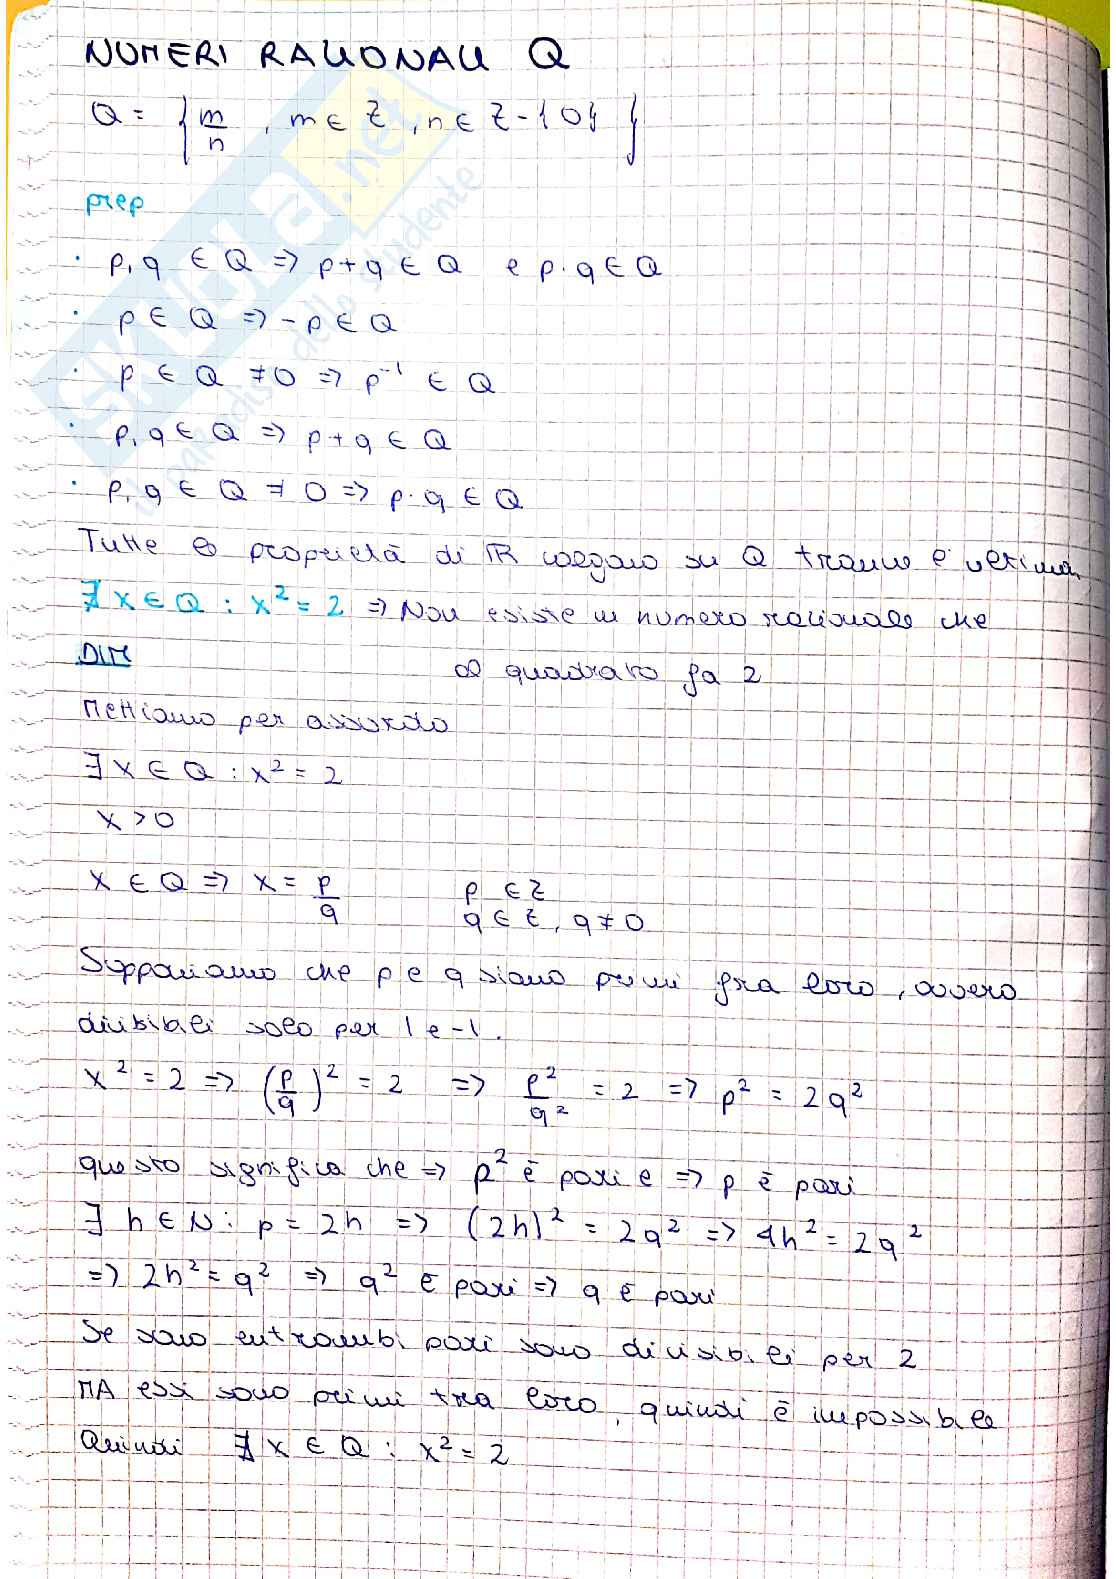 NUMERI RAZIONALI Q
Q = { m/n , m ∈ Z , n ∈ Z - {0} }
prep
· p, q ∈ Q => p + q ∈ Q e p · q ∈ Q
· p ∈ Q => - p ∈ Q
· p ∈ Q ≠ 0 => p⁻¹ ∈ Q
· p, q ∈ Q => p + q ∈ Q
· p, q ∈ Q ≠ 0 => p · q ∈ Q
Tutte le proprietà di R valgono su Q tranne l'ultima,
∄ x ∈ Q : x² = 2 => Non esiste un numero razionale che
al quadrato fa 2
DIM
Mettiamo per assurdo
∃ x ∈ Q : x² = 2
x > 0
x ∈ Q => x = p/q p ∈ Z
q ∈ Z, q ≠ 0
Supponiamo che p e q siano primi fra loro, ovvero
divisibili solo per 1 e -1.
x² = 2 => (p/q)² = 2 => p²/q² = 2 => p² = 2q²
questo significa che => p² è pari e => p è pari
∃ h ∈ N : p = 2h => (2h)² = 2q² => 4h² = 2q²
=> 2h² = q² => q² è pari => q è pari
Se sono entrambi pari sono divisibili per 2
MA essi sono primi tra loro, quindi è impossibile
Quindi ∄ x ∈ Q : x² = 2
SKUOLA.net
il paradiso dello studente